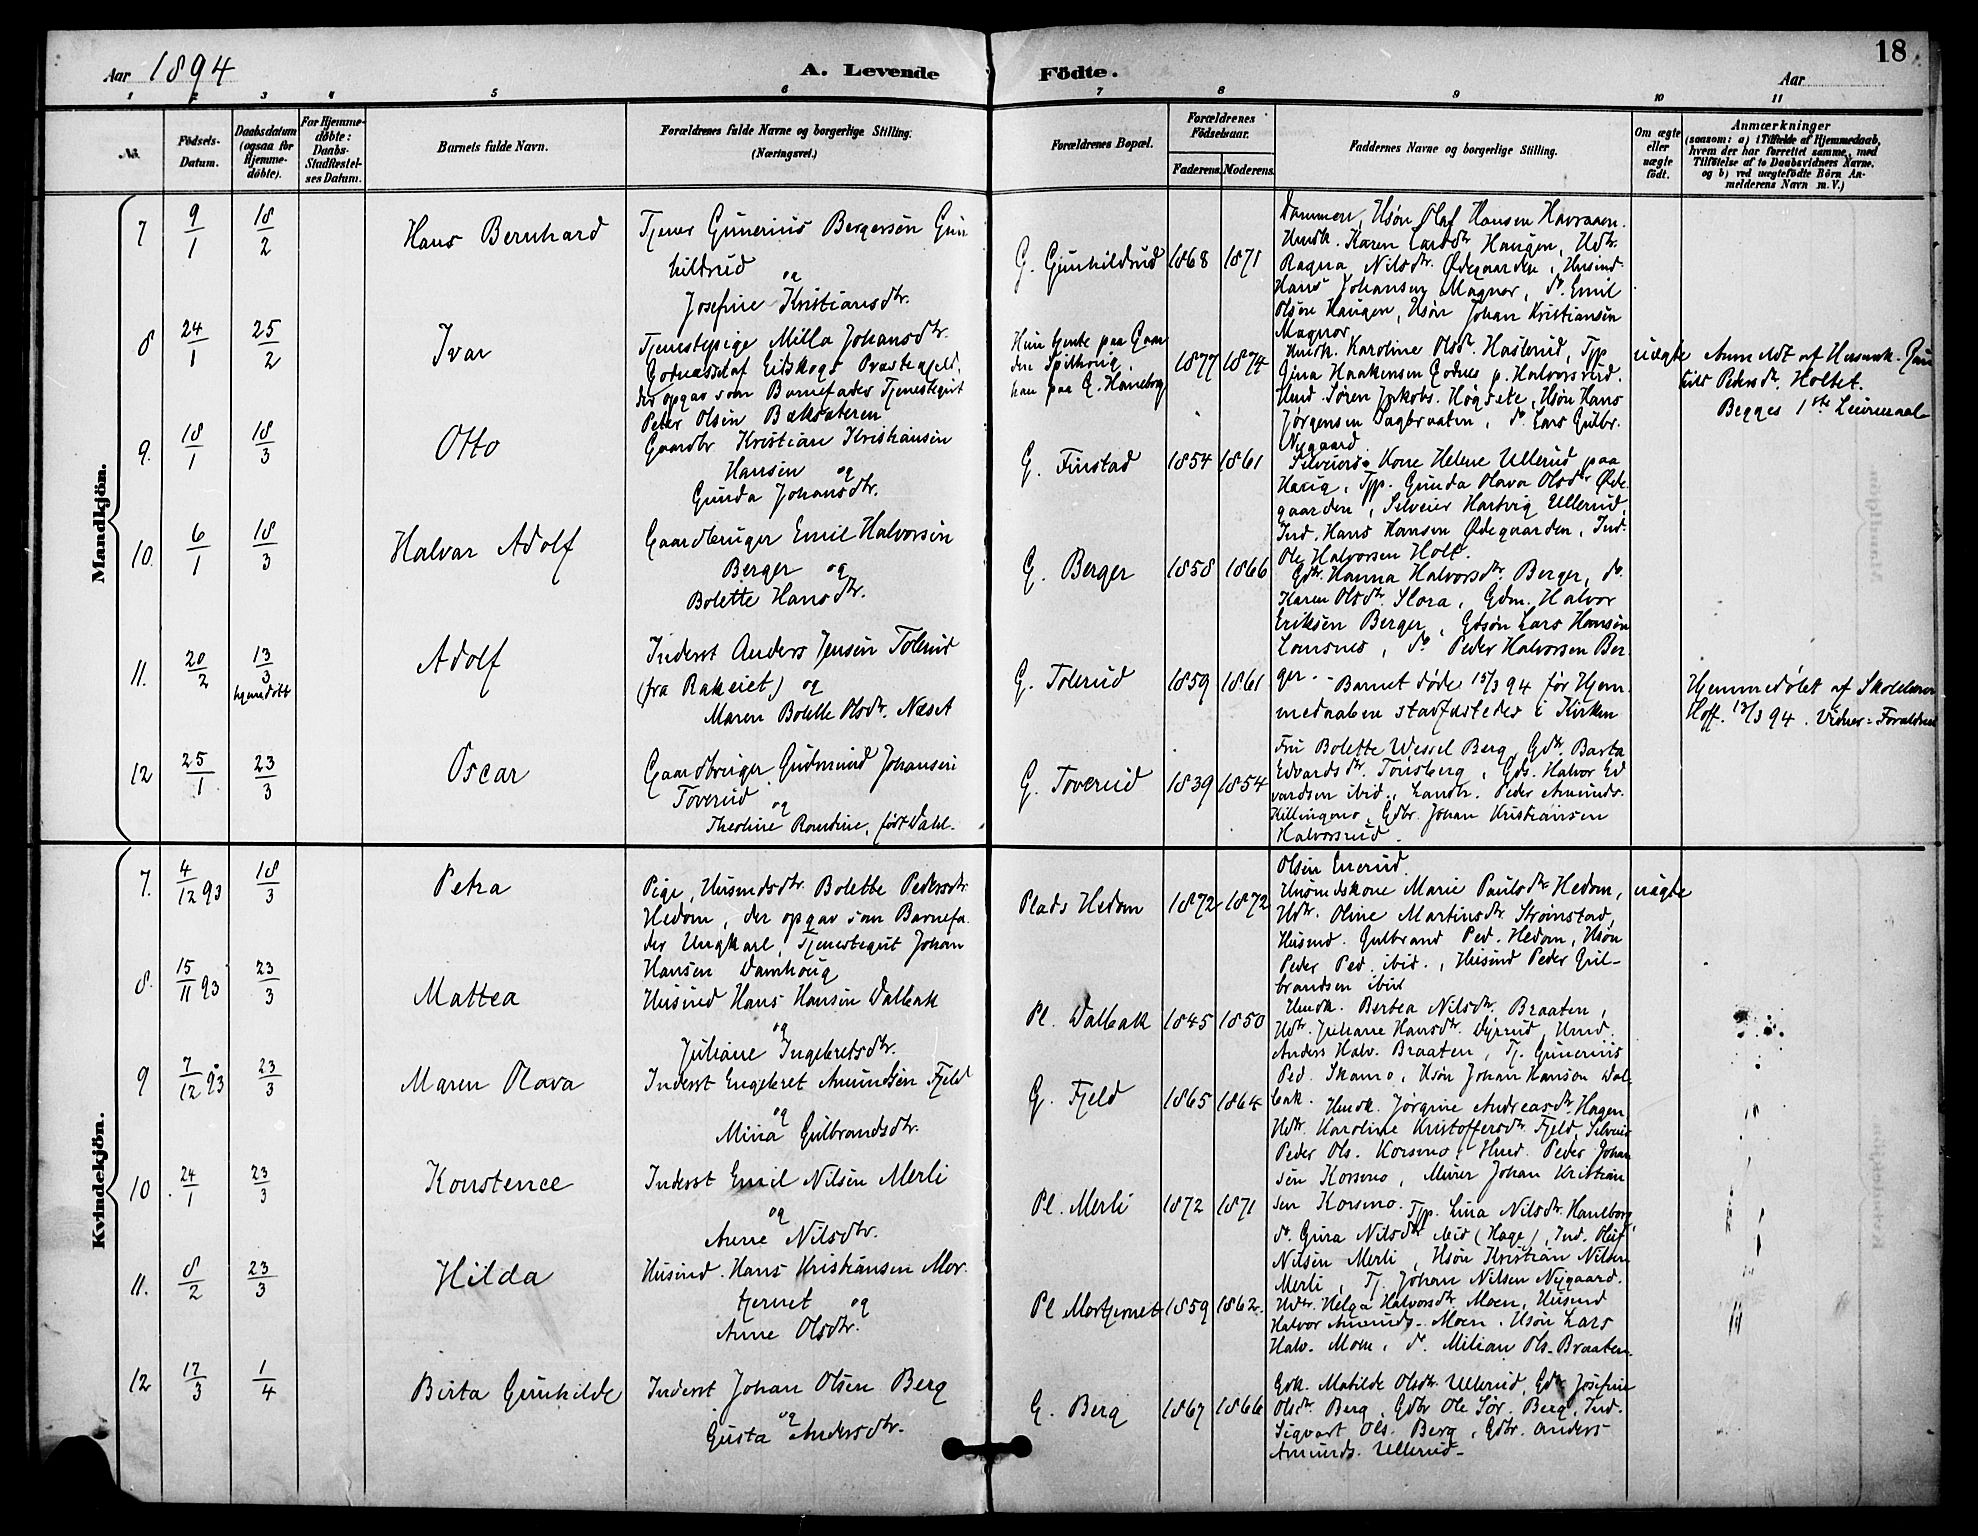 Aar 1894
A. Levende
Födte.
Aar
18
1 2 3 4 5 6 7 8 9 10 11
No.
Födsels-
Datum.
Daabsdatum
(ogsaa for
Hjemme-
döbte).
For Hjemme-
döbte:
Daabs-
Stadfæstel-
ses Datum.
Barnets fulde Navn.
Forældrenes fulde Navne og borgerlige Stilling.
(Næringsvei.)
Forældrenes Bopæl.
Forældrenes
Födselsaar.
Faderens. Moderens.
Faddernes Navne og borgerlige Stilling.
Om ægte
eller
uægte
födt.
Anmærkninger
(saasom: a) i Tilfælde af Hjemmedaab,
hvem der har forrettet samme, med
Tilföielse af to Daabsvidners Navne,
og b) ved uægtefödte Börn An-
melderens Navn m. V.)
Mandkjön.
7
9/1
18/2
Hans Bernhard
Tjener Gunerius Bergersen Gun
hildrud
og
Josefine Kristiansdtr.
G. Gunhildrud
1868
1871
Dammen, Usøn Olaf Hansen Havraaen.
Hmdk. Karen Larsdtr Haugen, Udtr.
Ragna Nilsdtr. Ødegaarden, Husmd.
Hans Johansen Magnor, do. Emil
Olsen Haugen, Usøn Johan Kristiansen
Magnor.
8
24/1
25/2
Ivar
Tjenestepige Milla Johansdtr.
af Eidskogs Præstegjeld,
der opgav som Barnefader Tjenestegut
Peter Olsen Bæksæteren
Hun tjente paa Gaar
den Spithoug,
han paa G. Haneborg
1877
1874
Hmdk. Karoline Olsdtr. Haslerud, Tjp
Gina Haakensen Godnes p. Halvorsrud.
Hmd. Søren Jakobs. Høgsete, Usøn Hans
Jørgensen Sagbraaten, do. Lars Gulbr.
Nygaard.
uægte
Anmeldt af Husmk. Gun
hild Pedersdtr. Holtet.
Begges 1ste Leiermaal
9.
18/1
18/3
Otto
Gaardbr Kristian Kristiansen
Hansen og
Gunda Johansdtr.
G. Finstad
1854
1861
Selveiers Kone Helene Ullerud paa
Haug, Tjp. Gunda Olava Olsdtr Øde
gaarden, Selveier Hartvig Ullerud,
Ind. Hans Hansen Ødegaarden, Ind.
Ole Halvorsen Holt.
10.
6/1
18/3
Halvar Adolf
Gaardbruger Emil Halvorsen
Berger og
Bolette Hansdtr.
G. Berger
1858
1866
Gdtr. Hanna Halvorsdtr. Berger, do.
Karen Olsdtr. Slora, Gdm. Halvor
Eriksen Berger, Gdsøn Lars Hansen
Lonsnes, do Peder Halvorsen Ber
ger.
11.
20/2
13/3
hjemdøbt
Adolf
Inderst Anders Jensen Tolerud
(fra Rakeiet) og
Maren Bolette Olsdtr. Næset
G. Tolerud
1859
1861
- Barnet døde 15/3 94 før Hjem
medaaben stadfæstedes i Kirken
Hjemmedøbt af Skolelærer
Hoff. 13/3 94. Vidner: Forældrene
12
25/1
23/3
Oscar
Gaardbruger Gudmund Johansen
Toverud og
Theoline Romdine, født Dahl.
G. Toverud
1839
1854
Fru Bolette Wessel Berg, Gdtr. Barta
Edvardsdtr. Tonsberg, Gds. Halvor Ed
vardsen ibid., Landh. Peder Amunds.
Killingmo, Gdbr. Johan Kristiansen
Halvorsrud.
Kvindekjön.
7.
4/12 93
18/3
Petra
Pige, Husmdsdtr. Bolette Pedersdtr
Hedom, der opgav som Barnefa
der Ungkarl, Tjenestegut Johan
Hansen Damhoug
Plads Hedom
1872
1872
Olsen Enerud.
Husmdskone Marie Paulsdtr Hedom,
Udtr. Oline Martinsdtr. Strømstad,
Husmd. Gulbrand Ped. Hedom, Usøn
Peder Ped. ibid., Husmd Peder Gul-
brandsen ibid
uægte
8.
15/11 93
23/3
Mattea
Husmd Hans Hansen Dalbak
og
Juliane Ingebretsdtr.
Pl. Dalbak
1845
1850
Hmdk. Bertea Nilsdtr. Braaten,
Udtr. Juliane Hansdtr. Dyrrud, Hmd.
Anders Halv. Braaten, Tj. Gunerius
Ped. Skamo, Usøn Johan Hansen Dal
bak.
9
7/12 93
23/3
Maren Olava
Inderst Engebret Amundsen Fjeld
og
Mina Gulbrandsdtr.
G. Fjeld
1865
1864
Hmdk. Jørgine Andreasdtr. Hagen
Udtr. Karoline Kristoffersdtr. Fjeld, Selveier
Peder Ols. Korsmo, Hmd. Peder Johan
sen Korsmo, Murer Johan Kristian
sen Korsmo.
10
24/1
23/3
Konstence
Inderst Emil Nilsen Merli
og
Anne Nilsdtr.
Pl. Merli
1872
1871
Tjp. Lina Nilsdtr. Haneborg,
do. Gura Nilsdtr ibid (Hage), Ind. Oluf
Nilsen Merli, Usøn Kristian Nilsen
Merli, Tj. Johan Nilsen Nygaard.
11.
8/2
23/3
Hilda
Husmd. Hans Kristiansen Mor
tjernet og
Anne Olsdtr.
Pl Mortjernet
1859
1862.
Udtr. Helga Halvorsdtr. Moen, Husmd
Halvor Amunds. Moen. Usøn Lars
Halv. Moen, do. Milian Ols. Braaten.
12
17/3
1/4
Birta Gunhilde
Inderst Johan Olsen Berg
og
Gusta Andersdtr.
G. Berg
1867
1866
Gdk. Matilde Olsdtr. Ullerud, Gdtr Josefine
Olsdtr. Berg, Gdbr Ole Sør. Berg, Ind.
Sigvart Ols. Berg, Gdbr. Anders
Amunds. Ullerud.